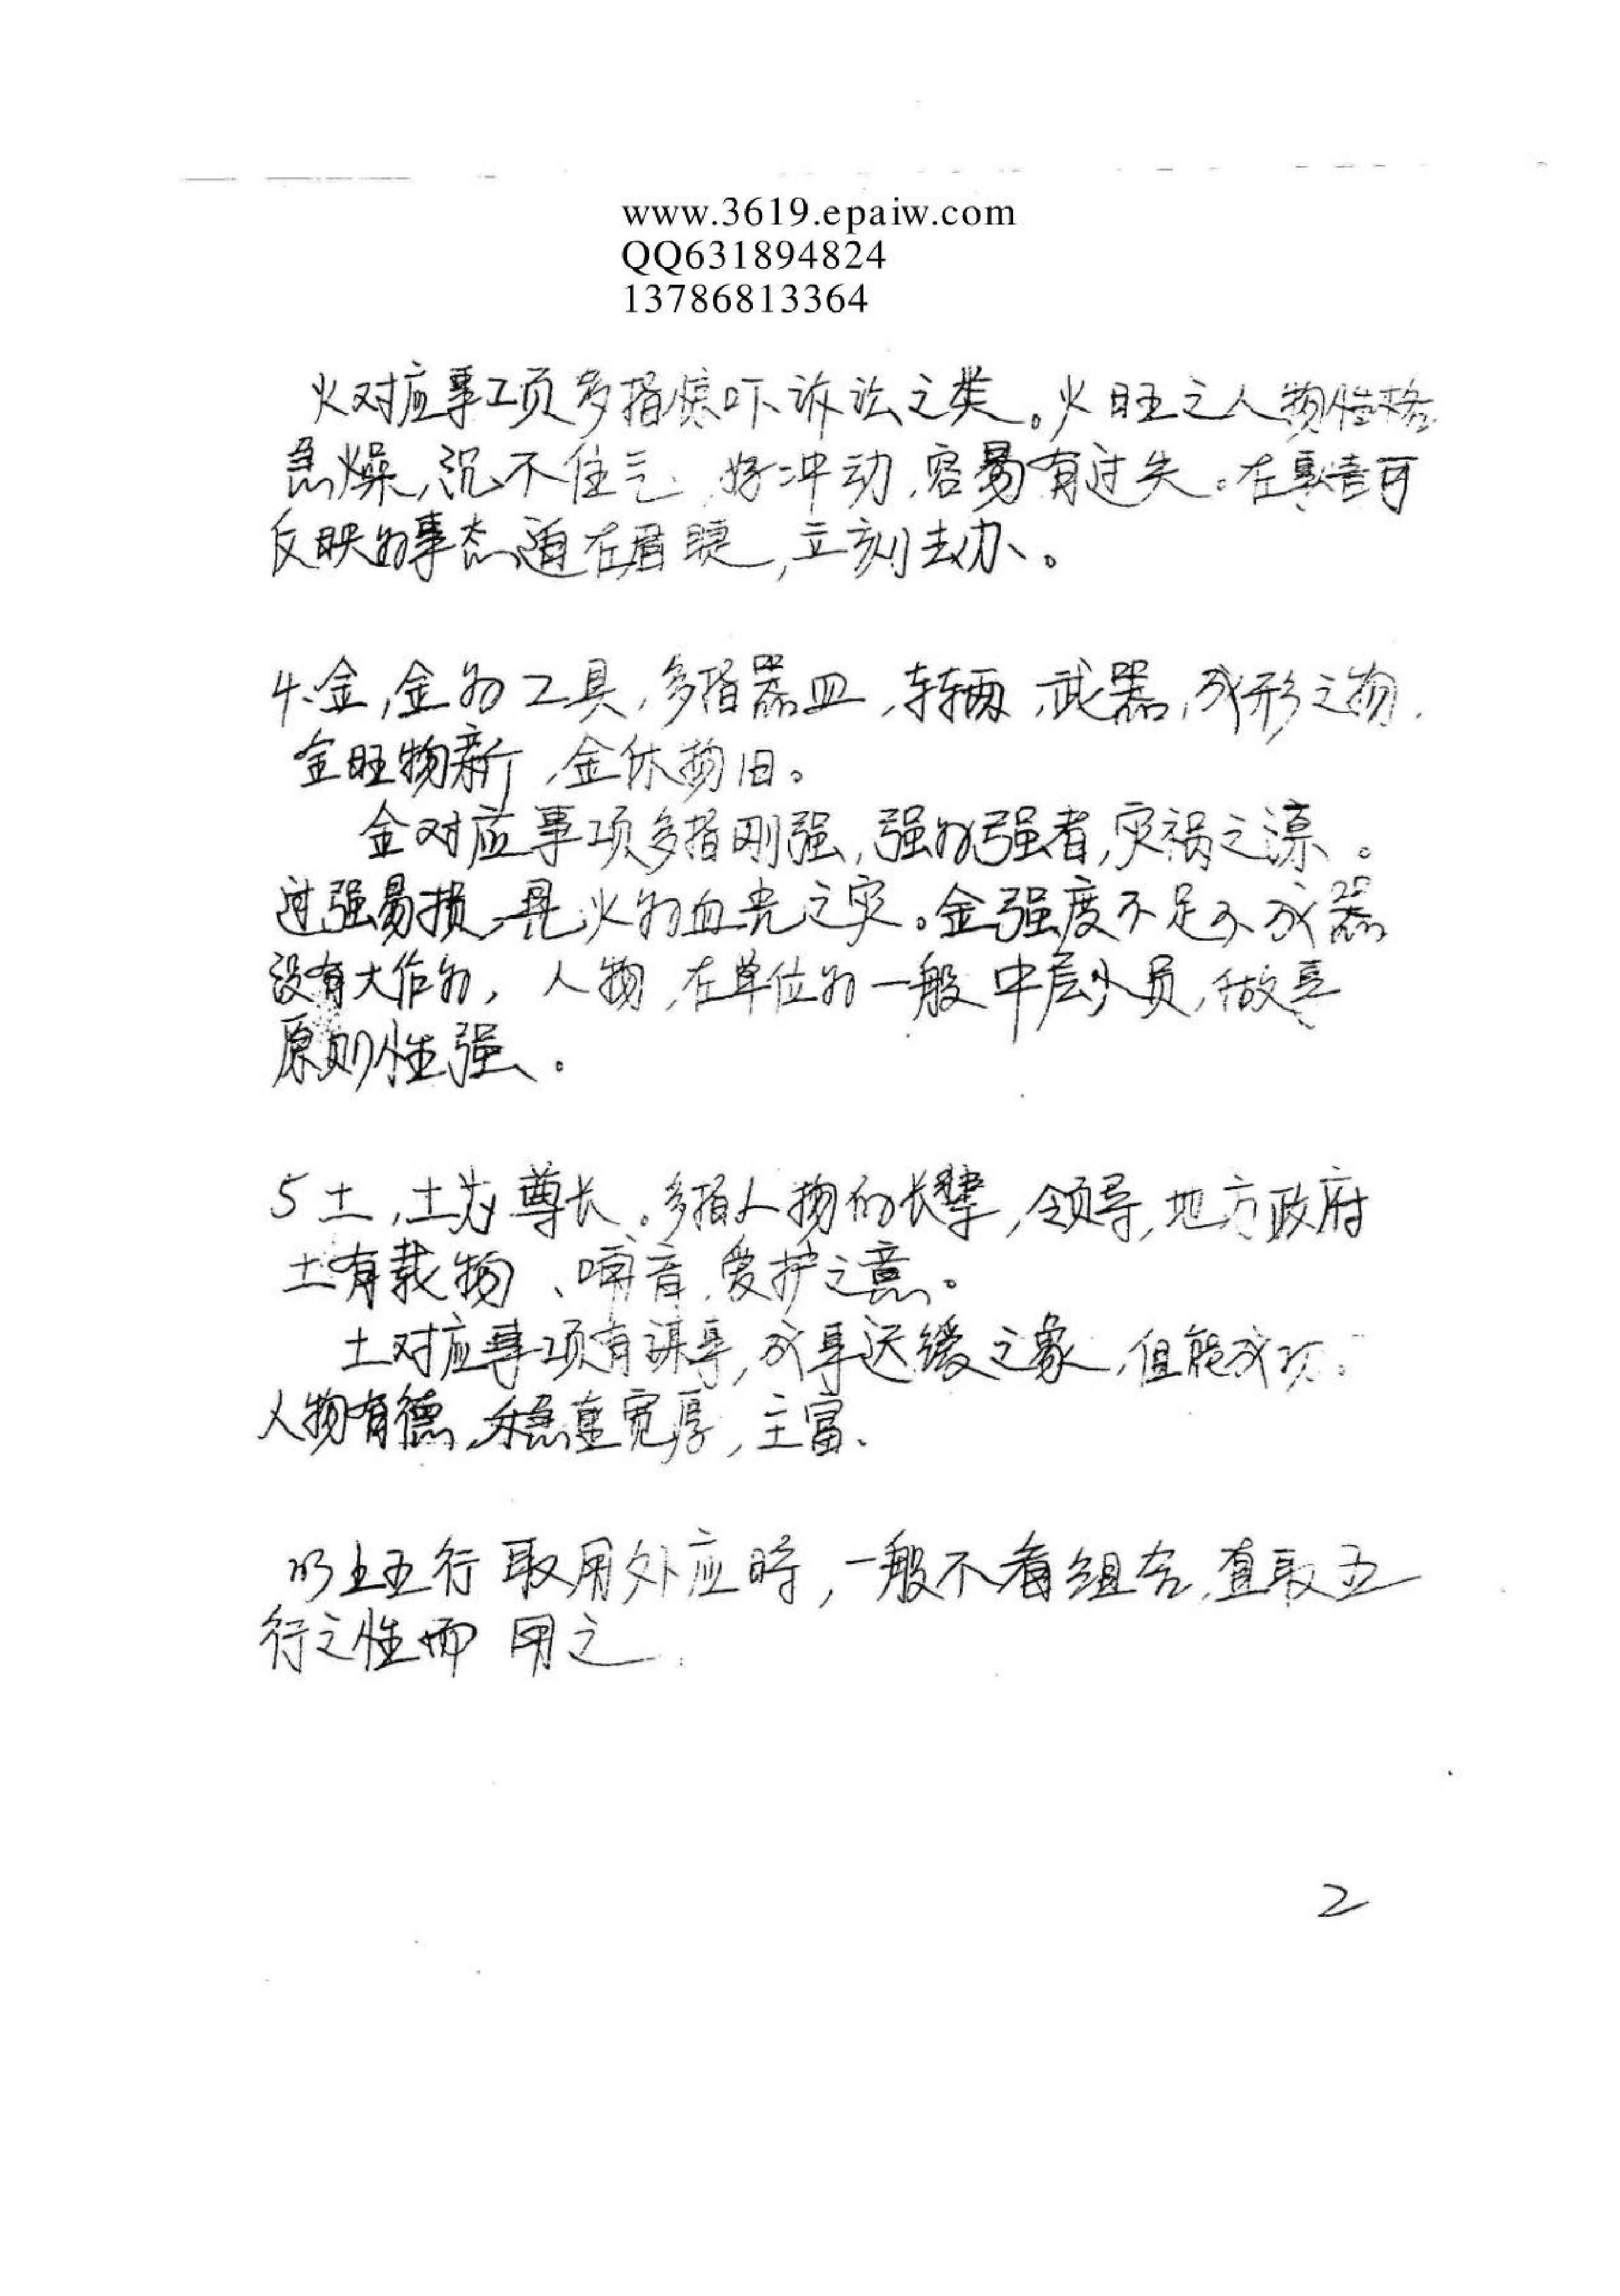 www.3619.epaiw.com
QQ631894824
13786813364
火对应事项多指惊吓诉讼之类。火旺之人物性格
急燥,沉不住气,好冲动,容易有过失。在事情可
反映为事态迫在眉睫,立刻去办、。
4.金,金为工具,多指器皿,车辆,武器,成形之物.
金旺物新,金休物旧。
金对应事项多指刚强,强为强者,灾祸之源。
过强易损,见火为血光之灾。金强度不足不成器
没有大作为,人物,在单位为一般中层少员,做事
原则性强。
5土,土为尊长。多指人物的长辈,领导,地方政府
土有载物、哺育,爱护之意。
土对应事项有谋事,成事迟缓之象,但能成功.
人物有德,稳重宽厚,主富.
以上五行取用外应时,一般不看组合,直取五
行之性而用之.
2